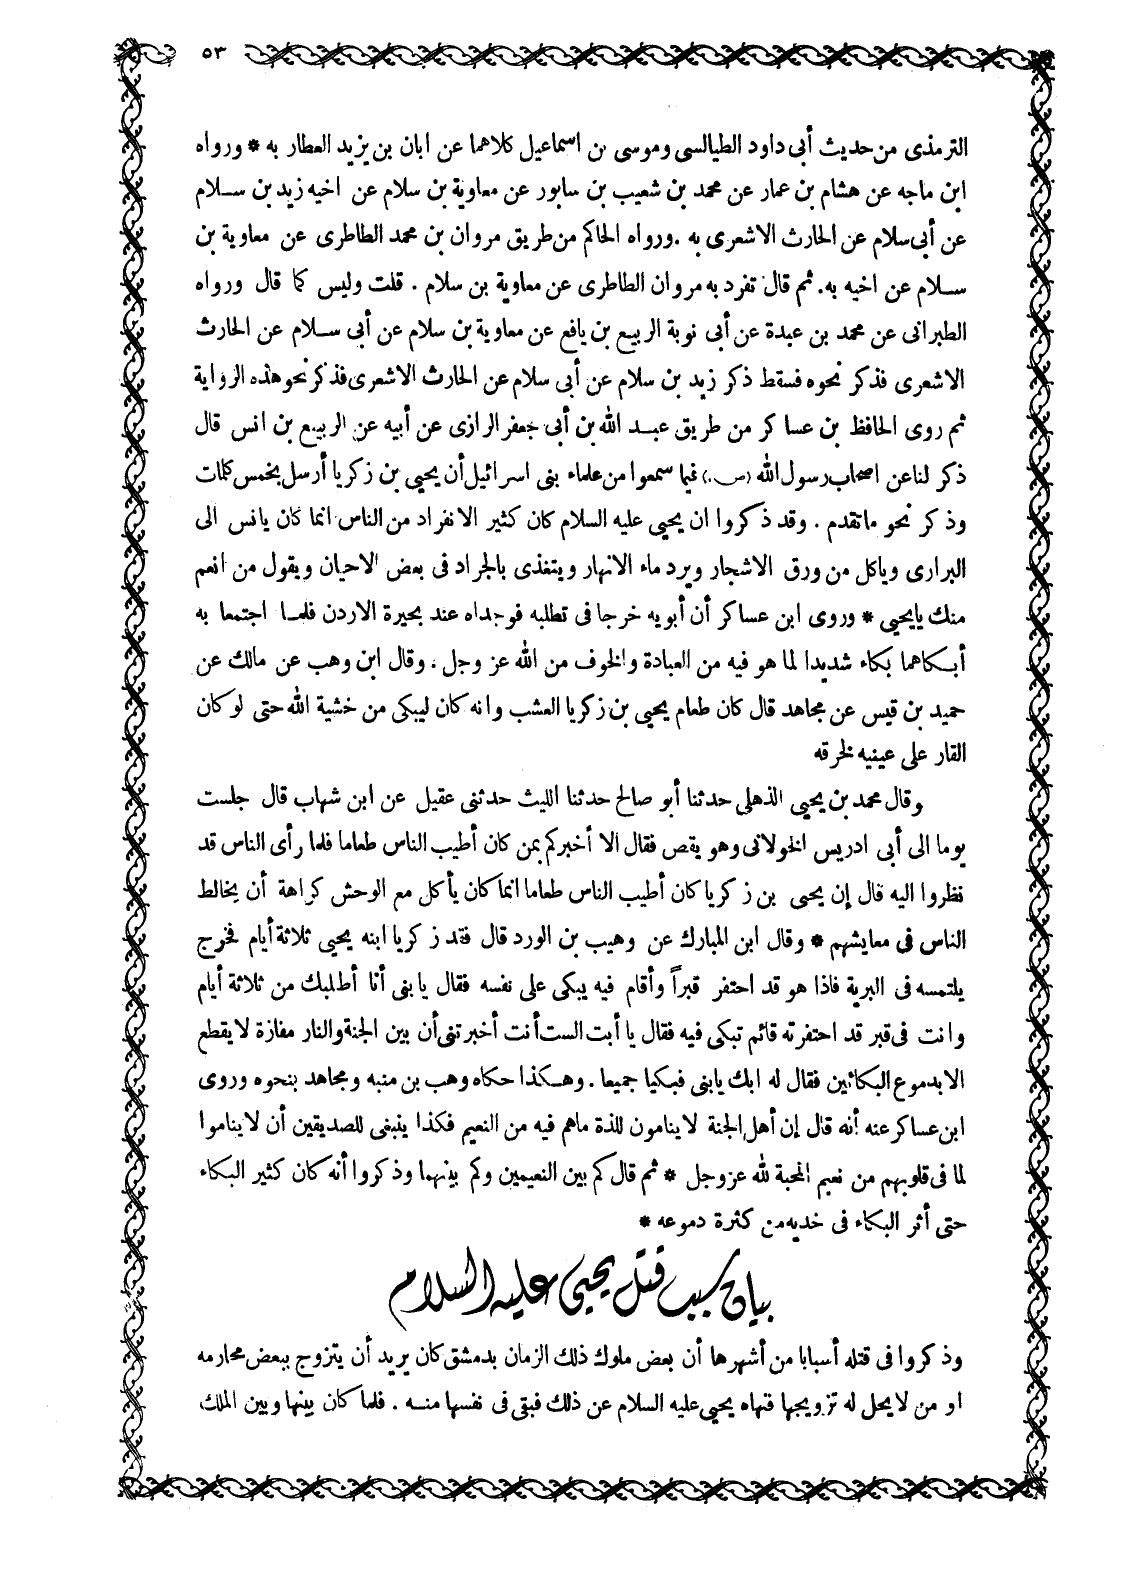 ٥٣
الترمذى من حديث أبى داود الطيالسى وموسى بن اسماعيل كلاهما عن ابان بن يزيد العطار به * ورواه
ابن ماجه عن هشام بن عمار عن محمد بن شعيب بن سابور عن معاوية بن سلام عن اخيه زيد بن سلام
عن أبى سلام عن الحارث الاشعرى به . ورواه الحاكم من طريق مروان بن محمد الطاطرى عن معاوية بن
سلام عن اخيه به. ثم قال تفرد به مروان الطاطرى عن معاوية بن سلام . قلت وليس كما قال ورواه
الطبرانى عن محمد بن عبدة عن أبى نوبة الربيع بن يافع عن معاوية بن سلام عن أبى سلام عن الحارث
الاشعرى فذكر نحوه فسقط ذكر زيد بن سلام عن أبى سلام عن الحارث الاشعرى فذكر نحو هذه الرواية
ثم روى الحافظ بن عساكر من طريق عبد الله بن أبى جعفر الرازى عن أبيه عن الربيع بن انس قال
ذكر لنا عن اصحاب رسول الله (ص.) فيما سمعوا من علماء بنى اسرائيل أن يحيى بن زكريا أرسل بخمس كلمات
وذكر نحو ما تقدم . وقد ذكروا ان يحيى عليه السلام كان كثير الانفراد من الناس انما كان يانس الى
البرارى وياكل من ورق الاشجار ويرد ماء الانهار ويتغذى بالجراد فى بعض الاحيان ويقول من انعم
منك يا يحيى * وروى ابن عساكر أن أبويه خرجا فى تطلبه فوجداه عند بحيرة الاردن فلما اجتمعا به
أبكاهما بكاء شديدا لما هو فيه من العبادة والخوف من الله عز وجل . وقال ابن وهب عن مالك عن
حميد بن قيس عن مجاهد قال كان طعام يحيى بن زكريا العشب وانه كان ليبكى من خشية الله حتى لو كان
القار على عينيه لخرقه
وقال محمد بن يحيى الذهلى حدثنا أبو صالح حدثنا الليث حدثنى عقيل عن ابن شهاب قال جلست
يوما الى أبى ادريس الخولانى وهو يقص فقال الا أخبركم بمن كان أطيب الناس طعاما فلما رأى الناس قد
نظروا اليه قال إن يحيى بن زكريا كان أطيب الناس طعاما انما كان يأكل مع الوحش كراهة أن يخالط
الناس فى معايشهم * وقال ابن المبارك عن وهيب بن الورد قال فقد زكريا ابنه يحيى ثلاثة أيام فخرج
يلتمسه فى البرية فاذا هو قد احتفر قبراً وأقام فيه يبكى على نفسه فقال يا بنى أنا أطلبك من ثلاثة أيام
وانت فى قبر قد احتفرته قائم تبكى فيه فقال يا أبت الست أنت أخبرتنى أن بين الجنة والنار مفازة لا يقطع
الا بدموع البكائين فقال له ابك يا بنى فبكيا جميعا . وهكذا حكاه وهب بن منبه ومجاهد بنحوه وروى
ابن عساكر عنه أنه قال إن أهل الجنة لا ينامون للذة ما هم فيه من النعيم فكذا ينبغى للصديقين أن لا يناموا
لما فى قلوبهم من نعيم المحبة لله عز وجل * ثم قال كم بين النعيمين وكم بينهما وذكروا أنه كان كثير البكاء
حتى أثر البكاء فى خديه من كثرة دموعه *
بيان سبب قتل يحيى عليه السلام
وذكروا فى قتله أسبابا من أشهرها أن بعض ملوك ذلك الزمان بدمشق كان يريد أن يتزوج ببعض محارمه
او من لا يحل له تزويجها فنهاه يحيى عليه السلام عن ذلك فبقى فى نفسها منه . فلما كان بينها وبين الملك